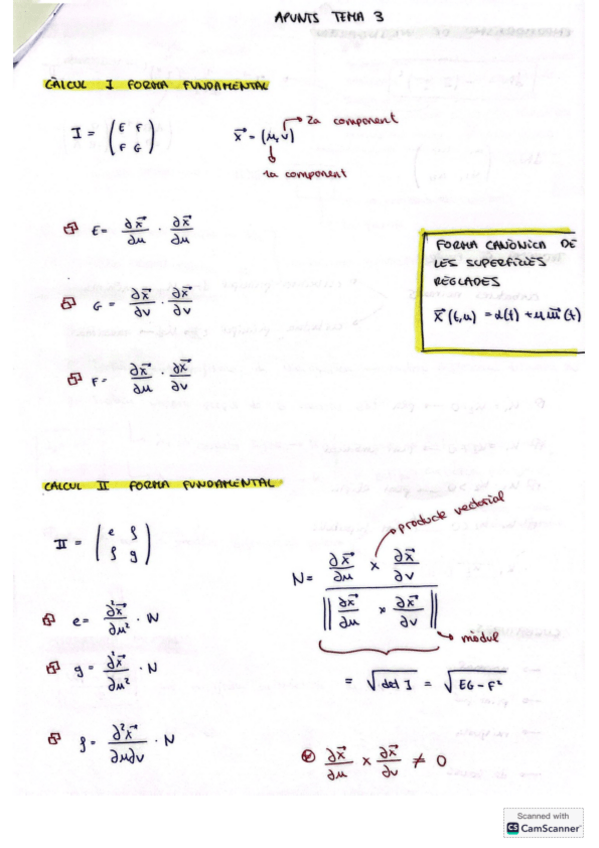 APUNTS TEMA 3
CÀLCUL I FORMA FUNDAMENTAL
I = (E F
F G)
x⃗ = (u,v)
2a component
1a component
E = ∂x⃗/∂u · ∂x⃗/∂u
G = ∂x⃗/∂v · ∂x⃗/∂v
F = ∂x⃗/∂u · ∂x⃗/∂v
FORMA CANÒNICA DE
LES SUPERFÍCIES
REGLADES
x⃗(t,u) = α(t) + u w⃗(t)
CÀLCUL II FORMA FUNDAMENTAL
II = (e f
f g)
producte vectorial
N = (∂x⃗/∂u × ∂x⃗/∂v) / ||∂x⃗/∂u × ∂x⃗/∂v||
mòdul
= √det I = √EG-F²
e = ∂²x⃗/∂u² · N
g = ∂²x⃗/∂u² · N
f = ∂²x⃗/∂u∂v · N
∂x⃗/∂u × ∂x⃗/∂v ≠ 0
Scanned with
CS CamScanner